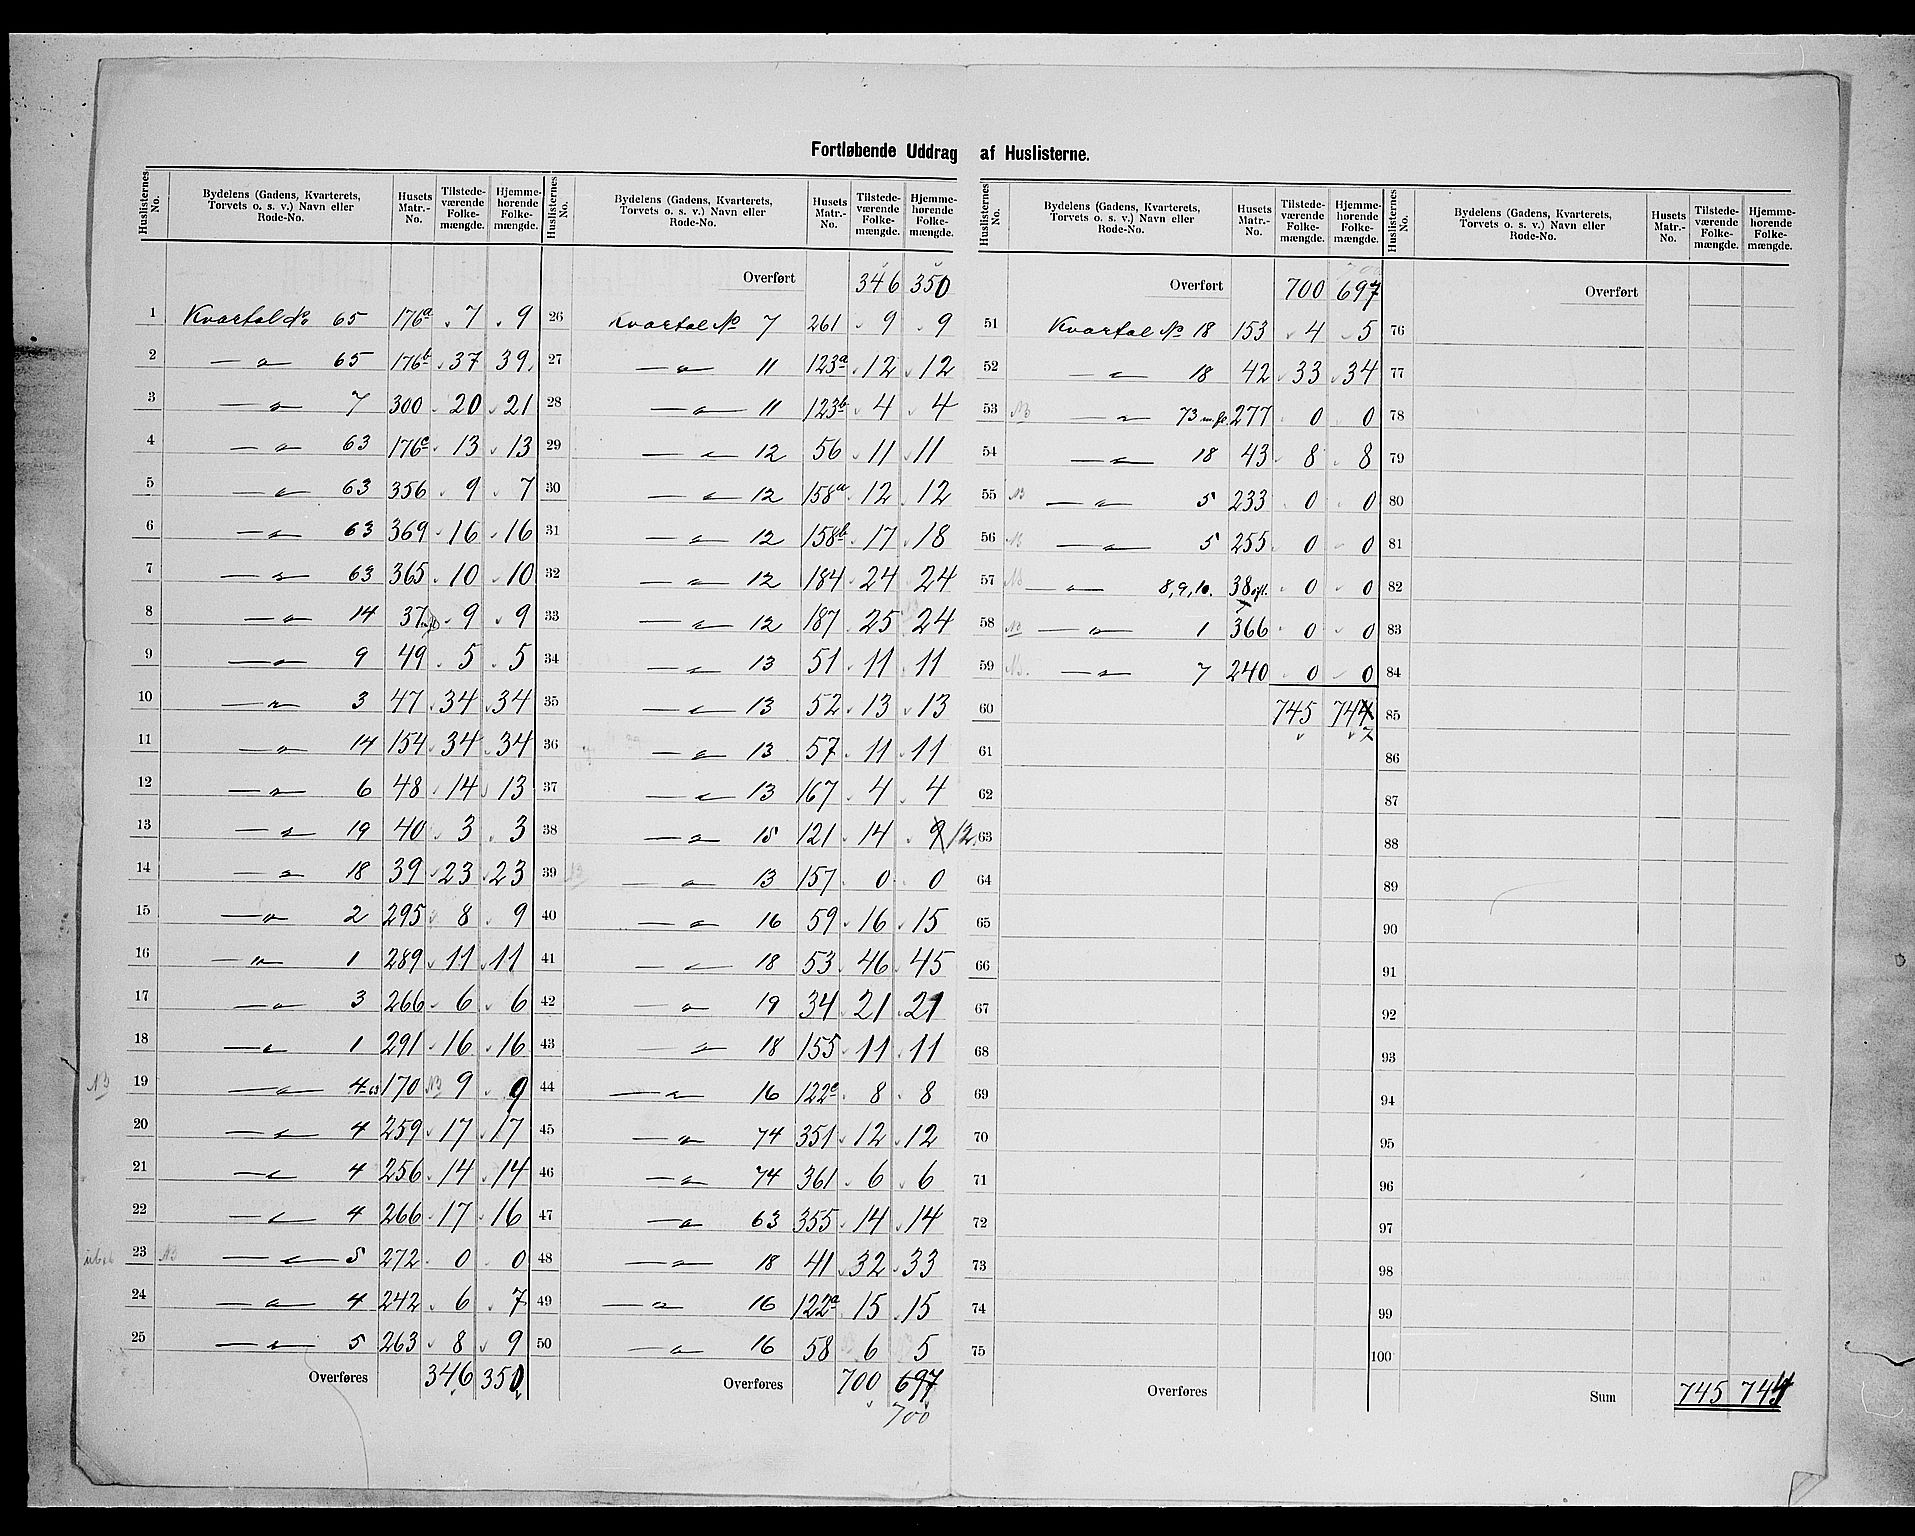 Fortløbende Uddrag af Huslisterne.
Huslisternes No. | Bydelens (Gadens, Kvarterets, Torvets o. s. v.) Navn eller Rode-No. | Husets Matr.-No. | Tilstedeværende Folkemængde. | Hjemmehørende Folkemængde.
1 Kvartal No 65 176a 7 9
2 — " — 65 176b 37 39
3 — " — 7 300 20 21
4 — " — 63 176c 13 13
5 — " — 63 356 9 7
6 — " — 63 369 16 16
7 — " — 63 365 10 10
8 — " — 14 37 9 9
9 — " — 9 49 5 5
10 — " — 3 47 34 34
11 — " — 14 154 34 34
12 — " — 6 48 14 13
13 — " — 19 40 3 3
14 — " — 18 39 23 23
15 — " — 2 295 8 9
16 — " — 1 289 11 11
17 — " — 3 266 6 6
18 — " — 1 291 16 16
NB 19 — " — 4-63 170 NB 9 9
20 — " — 4 259 17 17
21 — " — 4 256 14 14
22 — " — 4 266 17 16
23 NB — " — 5 272 0 0
24 — " — 4 242 6 7
25 — " — 5 263 8 9
Overføres 346 350
Huslisternes No. | Bydelens (Gadens, Kvarterets, Torvets o. s. v.) Navn eller Rode-No. | Husets Matr.-No. | Tilstedeværende Folkemængde. | Hjemmehørende Folkemængde.
Overført 346 350
26 Kvartal No 7 261 9 9
27 — " — 11 123a 12 12
28 — " — 11 123b 4 4
29 — " — 12 56 11 11
30 — " — 12 158a 12 12
31 — " — 12 158b 17 18
32 — " — 12 184 24 24
33 — " — 12 187 25 24
34 — " — 13 51 11 11
35 — " — 13 52 13 13
36 — " — 13 57 11 11
37 — " — 13 167 4 4
38 — " — 15 121 14 9 12
39 NB — " — 13 157 0 0
40 — " — 16 59 16 15
41 — " — 18 53 46 45
42 — " — 19 34 21 21
43 — " — 18 155 11 11
44 — " — 16 122c 8 8
45 — " — 74 351 12 12
46 — " — 74 361 6 6
47 — " — 63 355 14 14
48 — " — 18 41 32 33
49 — " — 16 122a 15 15
50 — " — 16 58 6 5
Overføres 700 697
700
Huslisternes No. | Bydelens (Gadens, Kvarterets, Torvets o. s. v.) Navn eller Rode-No. | Husets Matr.-No. | Tilstedeværende Folkemængde. | Hjemmehørende Folkemængde.
Overført 700 697
51 Kvartal No 18 153 4 5
52 — " — 18 42 33 34
53 NB — " — 73 m.fl. 277 0 0
54 — " — 18 43 8 8
55 NB — " — 5 233 0 0
56 NB — " — 5 255 0 0
57 NB — " — 8, 9, 10. 38 ofl. 0 0
58 NB — " — 1 366 0 0
59 NB. — " — 7 240 0 0
60 745 744
7
61
62
63
64
65
66
67
68
69
70
71
72
73
74
75
Overføres
Huslisternes No. | Bydelens (Gadens, Kvarterets, Torvets o. s. v.) Navn eller Rode-No. | Husets Matr.-No. | Tilstedeværende Folkemængde. | Hjemmehørende Folkemængde.
Overført
76
77
78
79
80
81
82
83
84
85
86
87
88
89
90
91
92
93
94
95
96
97
98
99
100
Sum 745 744